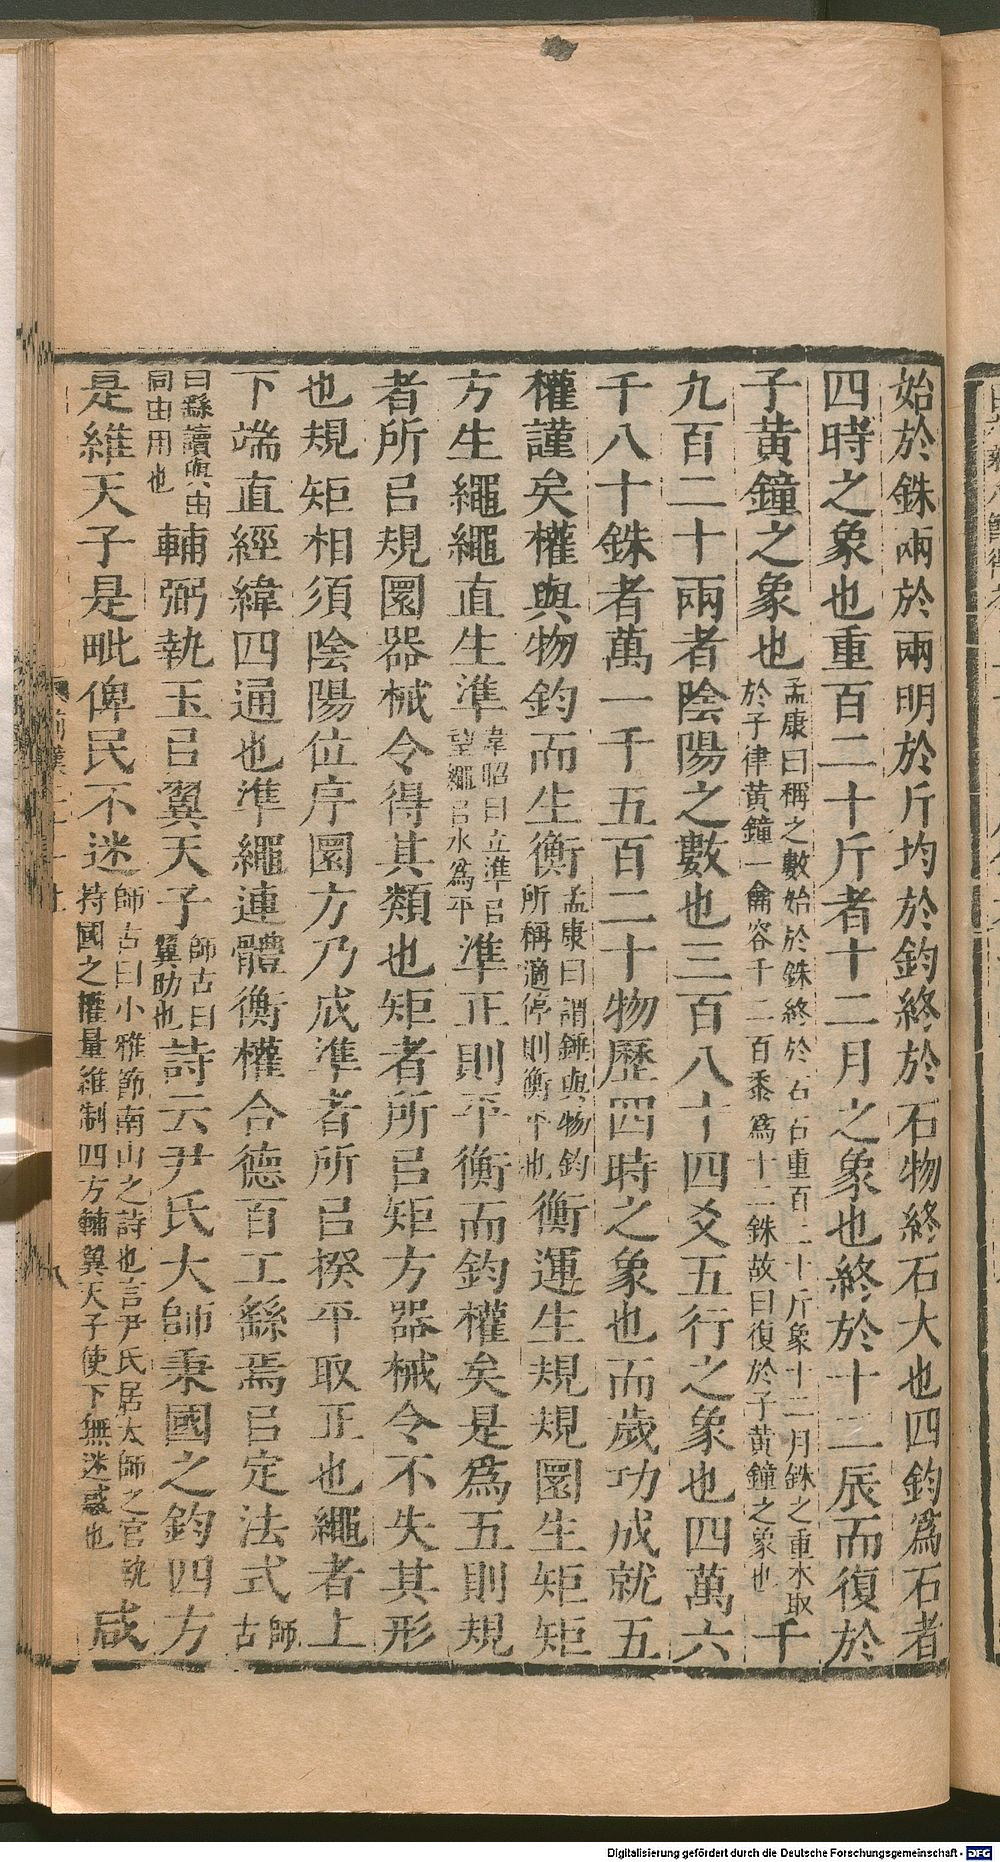 始於銖兩於兩明於斤均於鈞終於石物終石大也四鈞爲石者
四時之象也重百二十斤者十二月之象也終於十二辰而復於
子黃鐘之象也孟康曰稱之數始於銖終於石石重百二十斤象十二月銖之重本取於子律黃鐘一龠容千二百黍爲十二銖故曰復於子黃鐘之象也千
九百二十兩者陰陽之數也三百八十四爻五行之象也四萬六
千八十銖者萬一千五百二十物歷四時之象也而歲功成就五
權謹矣權與物鈞而生衡孟康曰謂錘與物鈞所稱適停則衡平也衡運生規規圜生矩矩
方生繩繩直生準韋昭曰立準㠯望繩㠯水爲平準正則平衡而鈞權矣是爲五則規
者所㠯規圜器械令得其類也矩者所㠯矩方器械令不失其形
也規矩相須陰陽位序圜方乃成準者所㠯揆平取正也繩者上
下端直經緯四通也準繩連體衡權合德百工繇焉㠯定法式師古
曰繇讀與由同由用也輔弼執玉㠯翼天子師古曰翼助也詩云尹氏大師秉國之鈞四方
是維天子是毗俾民不迷師古曰小雅節南山之詩也言尹氏居太師之官執持國之權量維制四方輔翼天子使下無迷惑也咸
Digitalisierung gefördert durch die Deutsche Forschungsgemeinschaft - DFG